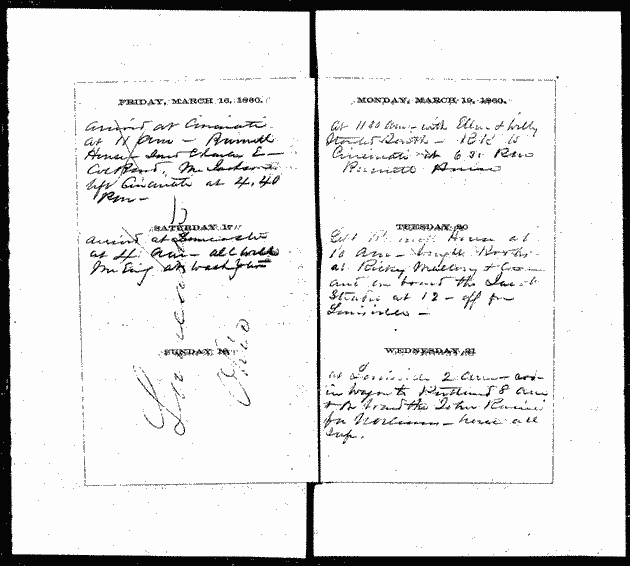 FRIDAY, MARCH 16, 1860.
arrived at Cincinnati
at 11 am – Burnett
House – Charles E –
left Cincinnati at 4,40
Pm –
SATURDAY 17
arrived at Lancaster
at 4 am – all well
Mr Ewing at Washington
SUNDAY 18
Lancaster
Ohio
MONDAY, MARCH 19, 1860.
at 11 20 am – with Ellen & Willy
Started South –
Cincinnati at 6 30 Pm
Burnett House
TUESDAY 20
Left Burnett House at
10 am – bought Books
at Ricky Mallory & Co –
and on board the Jacob
Strader at 12 – off for
Louisville –
WEDNESDAY 21
at Louisville 2 am –
in wagon to Portland 8 am
& on board the John Raine
for N Orleans – here all
day.